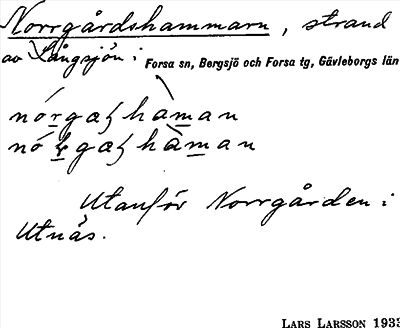 Norrgårdshammarn, strand
av Långsjön i Forsa sn, Bergsjö och Forsa tg, Gävleborgs län
Utanför Norrgården i
Utnäs.
LARS LARSSON 1933